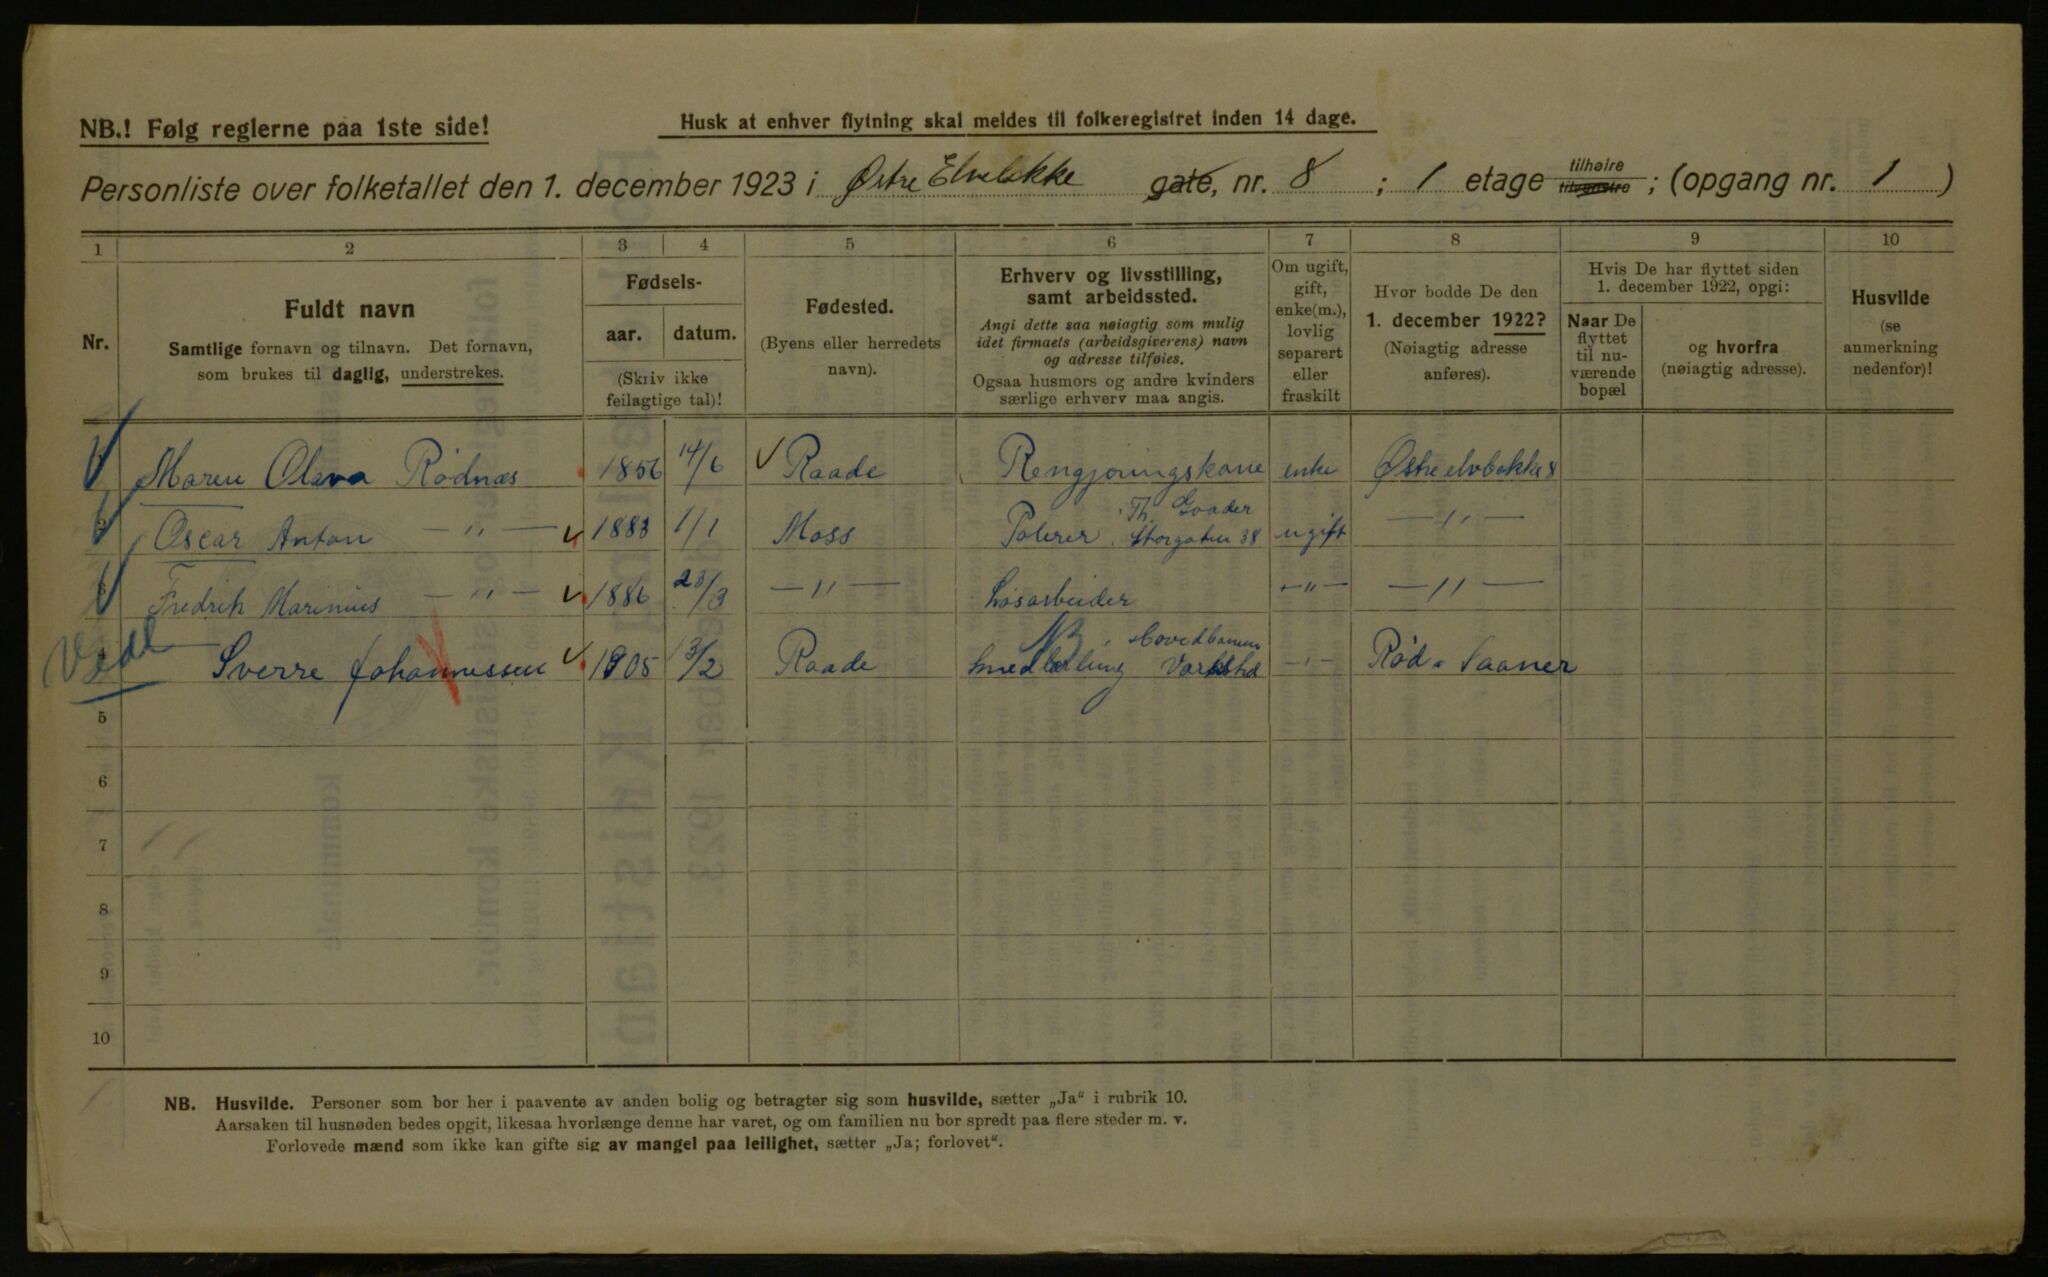 NB.! Følg reglerne paa 1ste side!
Husk at enhver flytning skal meldes til folkeregistret inden 14 dage.
Personliste over folketallet den 1. december 1923 i Østre Elvebakke gate, nr. 8 ; 1 etage tilhøire tilvenstre ; (opgang nr. 1 )
1 2 3 4 5 6 7 8 9 10
Nr.
Fuldt navn
Samtlige fornavn og tilnavn. Det fornavn,
som brukes til daglig, understrekes.
Fødsels-
aar. datum.
(Skriv ikke
feilagtige tal)!
Fødested.
(Byens eller herredets
navn).
Erhverv og livsstilling,
samt arbeidssted.
Angi dette saa nøiagtig som mulig
idet firmaets (arbeidsgiverens) navn
og adresse tilføies.
Ogsaa husmors og andre kvinders
særlige erhverv maa angis.
Om ugift,
gift,
enke(m.),
lovlig
separert
eller
fraskilt
Hvor bodde De den
1. december 1922?
(Nøiagtig adresse
anføres).
Hvis De har flyttet siden
1. december 1922, opgi:
Naar De
flyttet
til nu-
værende
bopæl
og hvorfra
(nøiagtig adresse).
Husvilde
(se
anmerkning
nedenfor)!
1 Maren Olava Rødnæs 1856 14/6 Raade Rengjøringskone enke Østre elvbakke 8
2 Oscar Anton — " — 1883 1/1 Moss Polerer Th. Storgaten 38 ugift — " —
3 Fredrik Marinius — " — 1886 23/3 — " — Løsarbeider — " — — " —
Sverre Johannessen 1905 13/2 Raade Smedlærling Hovedbanens Værksted — " — Rød Saaner
5
6
7
8
9
10
NB. Husvilde. Personer som bor her i paavente av anden bolig og betragter sig som husvilde, sætter „Ja" i rubrik 10.
Aarsaken til husnøden bedes opgit, likesaa hvorlænge denne har varet, og om familien nu bor spredt paa flere steder m. v.
Forlovede mænd som ikke kan gifte sig av mangel paa leilighet, sætter „Ja; forlovet".